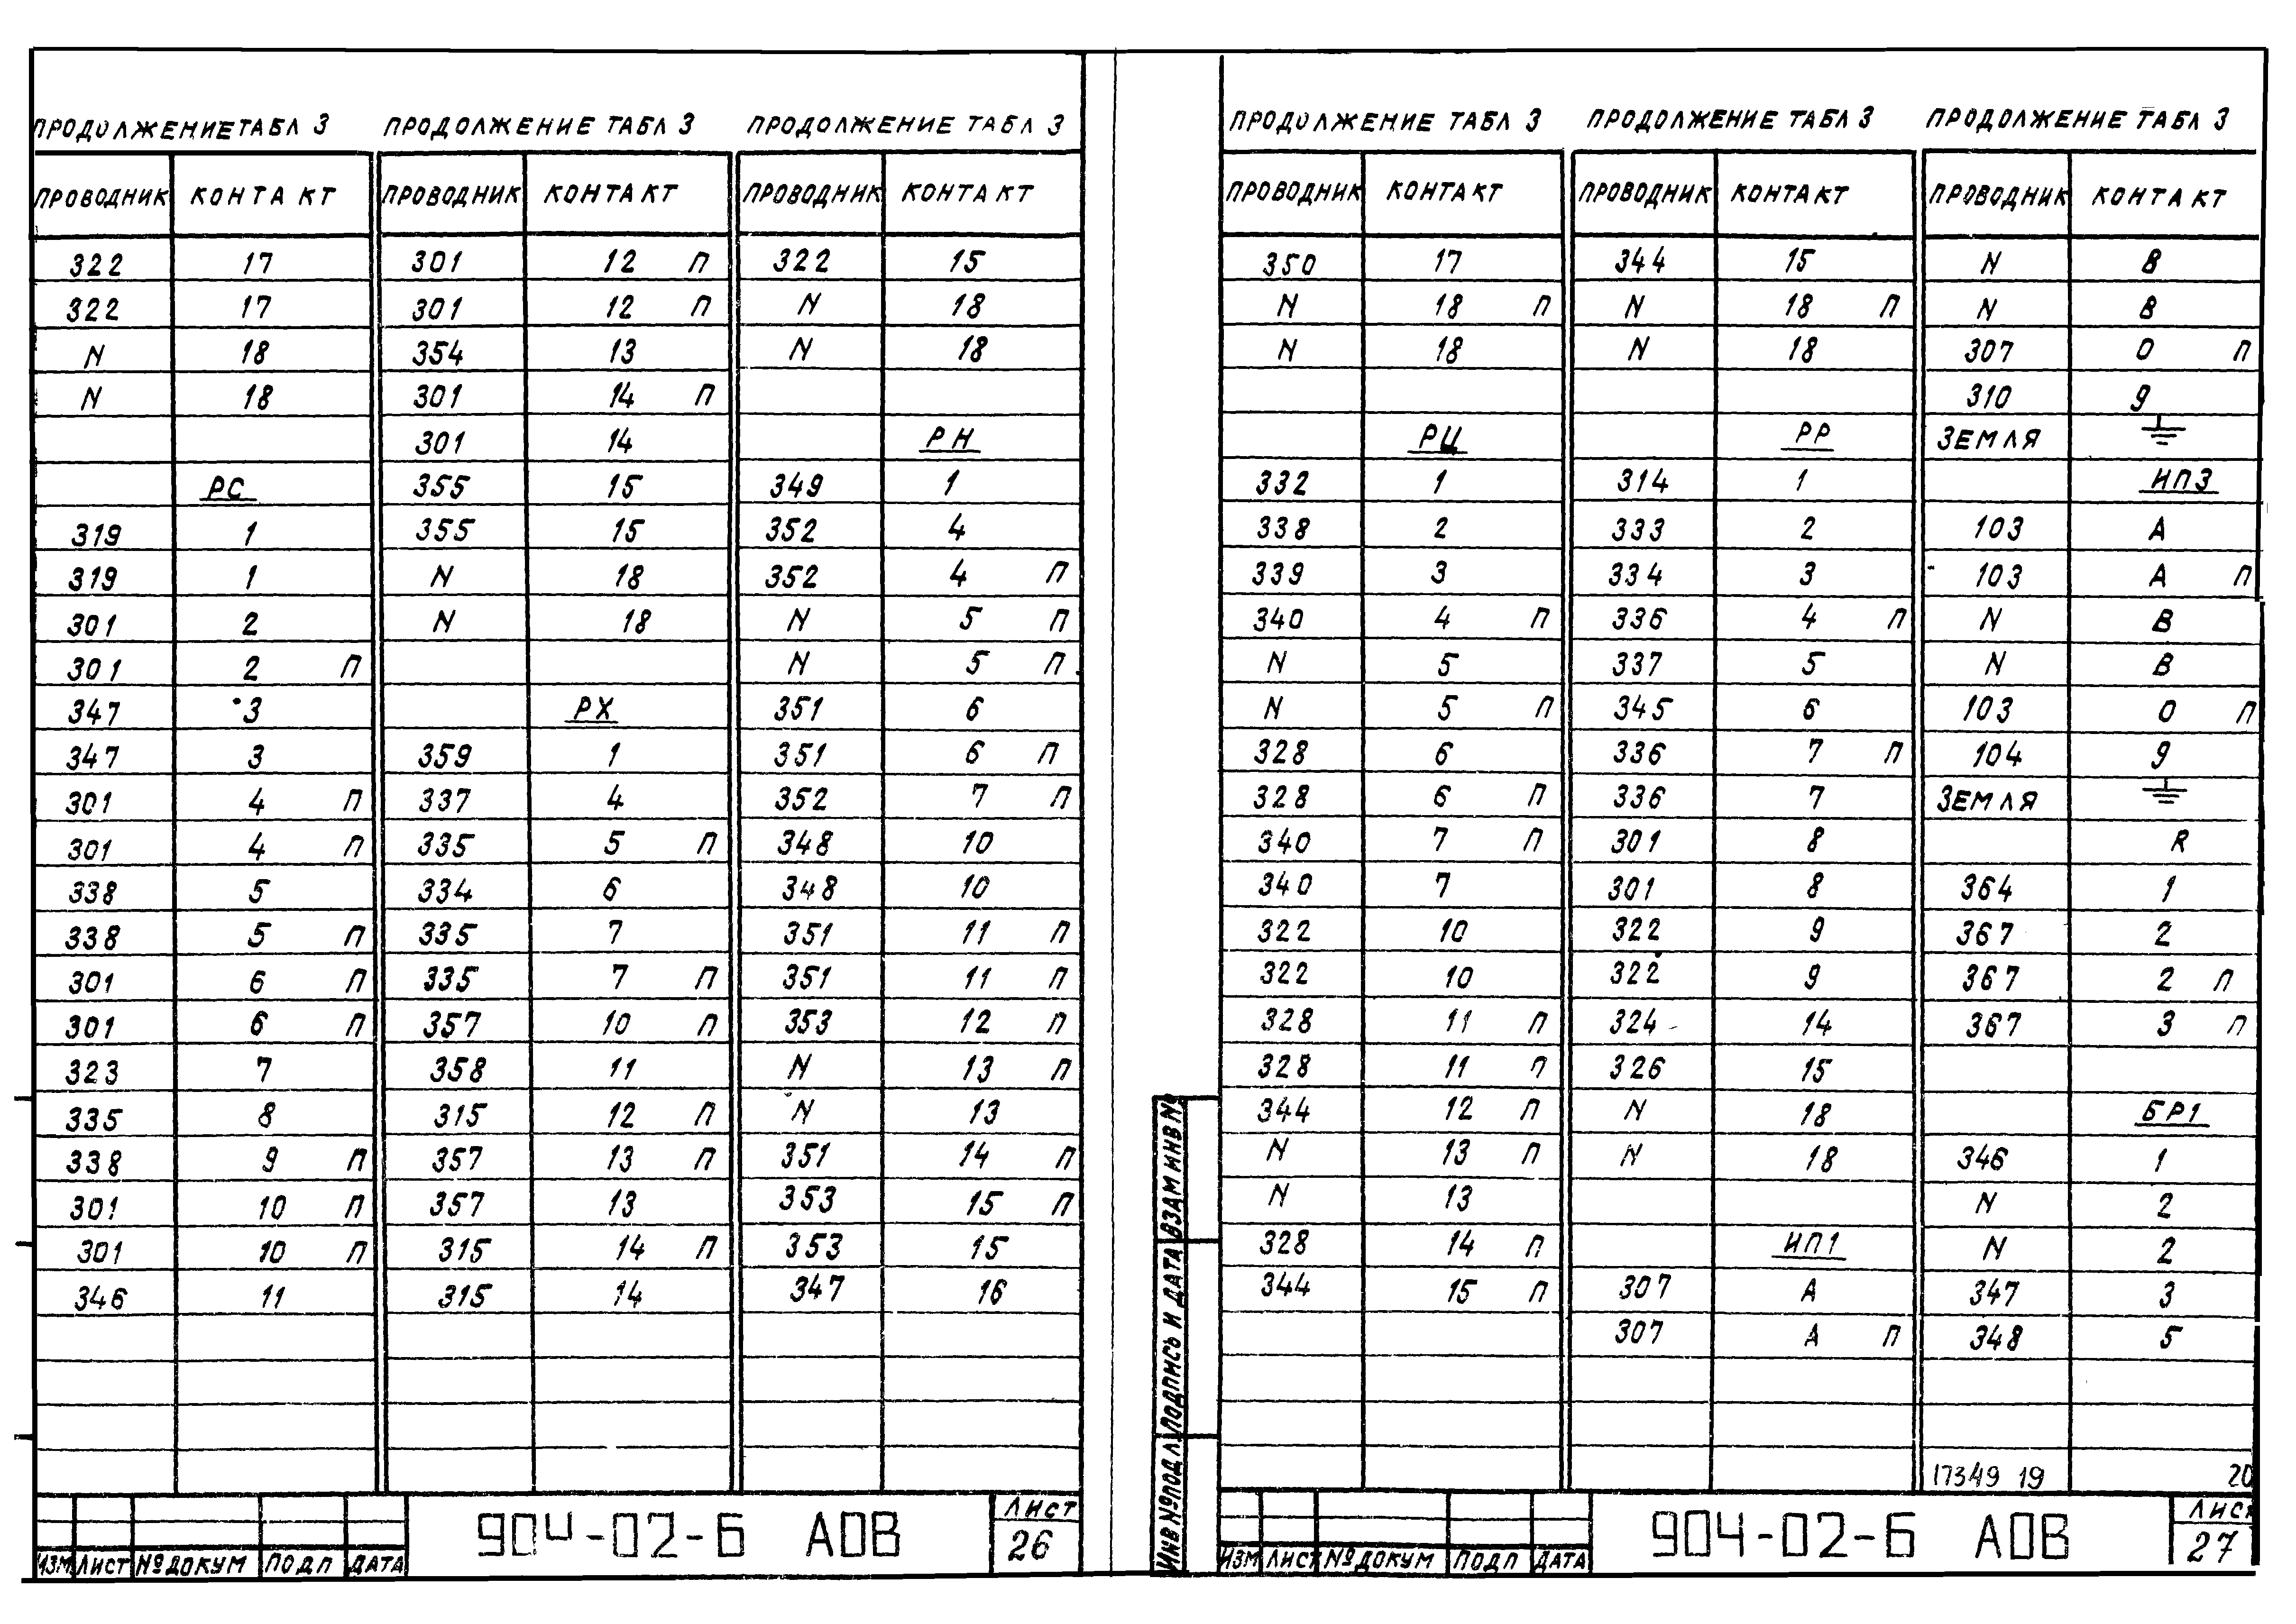 ПРОДОЛЖЕНИЕ ТАБЛ 3
ПРОВОДНИК КОНТАКТ
322 17
322 17
N 18
N 18
РС
319 1
319 1
301 2
301 2 П
347 3
347 3
301 4 П
301 4 П
338 5
338 5 П
301 6 П
301 6 П
323 7
335 8
338 9 П
301 10 П
301 10 П
346 11
ПРОДОЛЖЕНИЕ ТАБЛ 3
ПРОВОДНИК КОНТАКТ
301 12 П
301 12 П
354 13
301 14 П
301 14
355 15
355 15
N 18
N 18
РХ
359 1
337 4
335 5 П
334 6
335 7
335 7 П
357 10 П
358 11
315 12 П
357 13 П
357 13
315 14 П
315 14
ПРОДОЛЖЕНИЕ ТАБЛ 3
ПРОВОДНИК КОНТАКТ
322 15
N 18
N 18
РН
349 1
352 4
352 4 П
N 5 П
N 5 П
351 6
351 6 П
352 7 П
348 10
348 10
351 11 П
351 11 П
353 12 П
N 13 П
N 13
351 14 П
353 15 П
353 15
347 16
ИЗМ ЛИСТ № ДОКУМ ПОДП ДАТА
904-02-6 АОВ
ЛИСТ
26
ПРОДОЛЖЕНИЕ ТАБЛ 3
ПРОВОДНИК КОНТАКТ
350 17
N 18 П
N 18
РЦ
332 1
338 2
339 3
340 4 П
N 5
N 5 П
328 6
328 6 П
340 7 П
340 7
322 10
322 10
328 11 П
328 11 П
344 12 П
N 13 П
N 13
328 14 П
344 15 П
ПРОДОЛЖЕНИЕ ТАБЛ 3
ПРОВОДНИК КОНТАКТ
344 15
N 18 П
N 18
РР
314 1
333 2
334 3
336 4 П
337 5
345 6
336 7 П
336 7
301 8
301 8
322 9
322 9
324 14
326 15
N 18
N 18
ИП1
307 А
307 А П
ПРОДОЛЖЕНИЕ ТАБЛ 3
ПРОВОДНИК КОНТАКТ
N В
N В
307 0 П
310 9
ЗЕМЛЯ
ИП3
103 А
103 А П
N В
N В
103 0 П
104 9
ЗЕМЛЯ
R
364 1
367 2
367 2 П
367 3 П
БР1
346 1
N 2
N 2
347 3
348 5
17349 19 20
ИНВ № ПОДЛ. ПОДПИСЬ И ДАТА ВЗАМ ИНВ №
ИЗМ ЛИСТ № ДОКУМ ПОДП ДАТА
904-02-6 АОВ
ЛИСТ
27